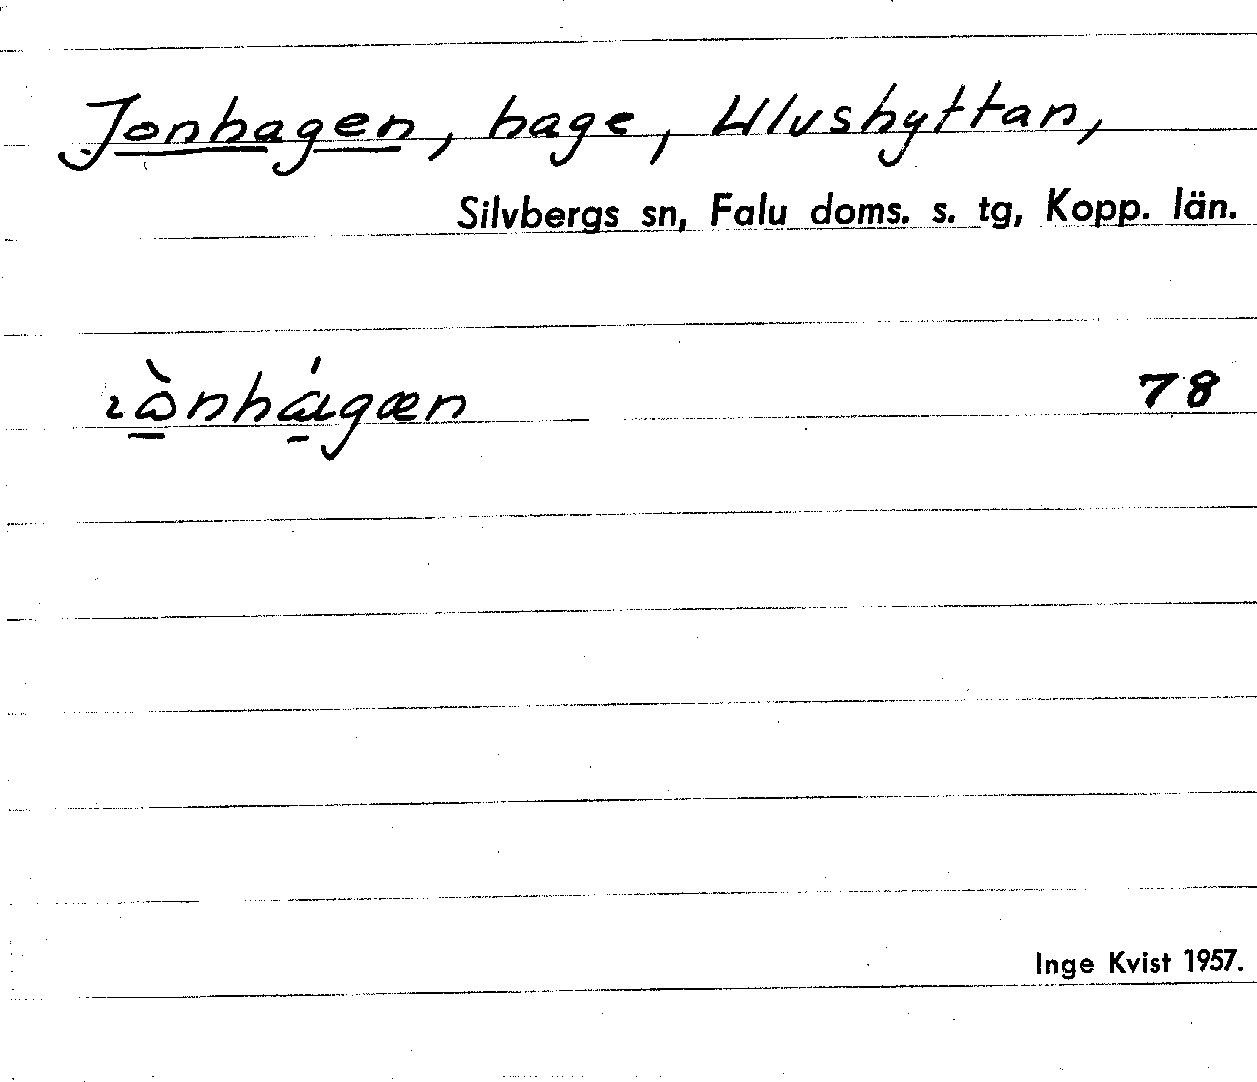 Jonhagen, hage, Ulvshyttan,
Silvbergs sn, Falu doms. s. tg, Kopp. län.
ɩò̱nhá̱gæn 78
Inge Kvist 1957.